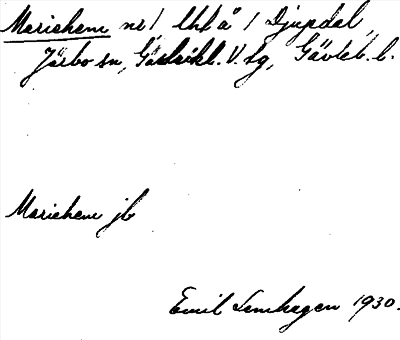 Mariehem nr 1, Uht å 1 Djupdal,
Järbo sn, Gästrikl. V. tg, Gävleb. l.
Mariehem jb
Emil Lemhagen 1930.